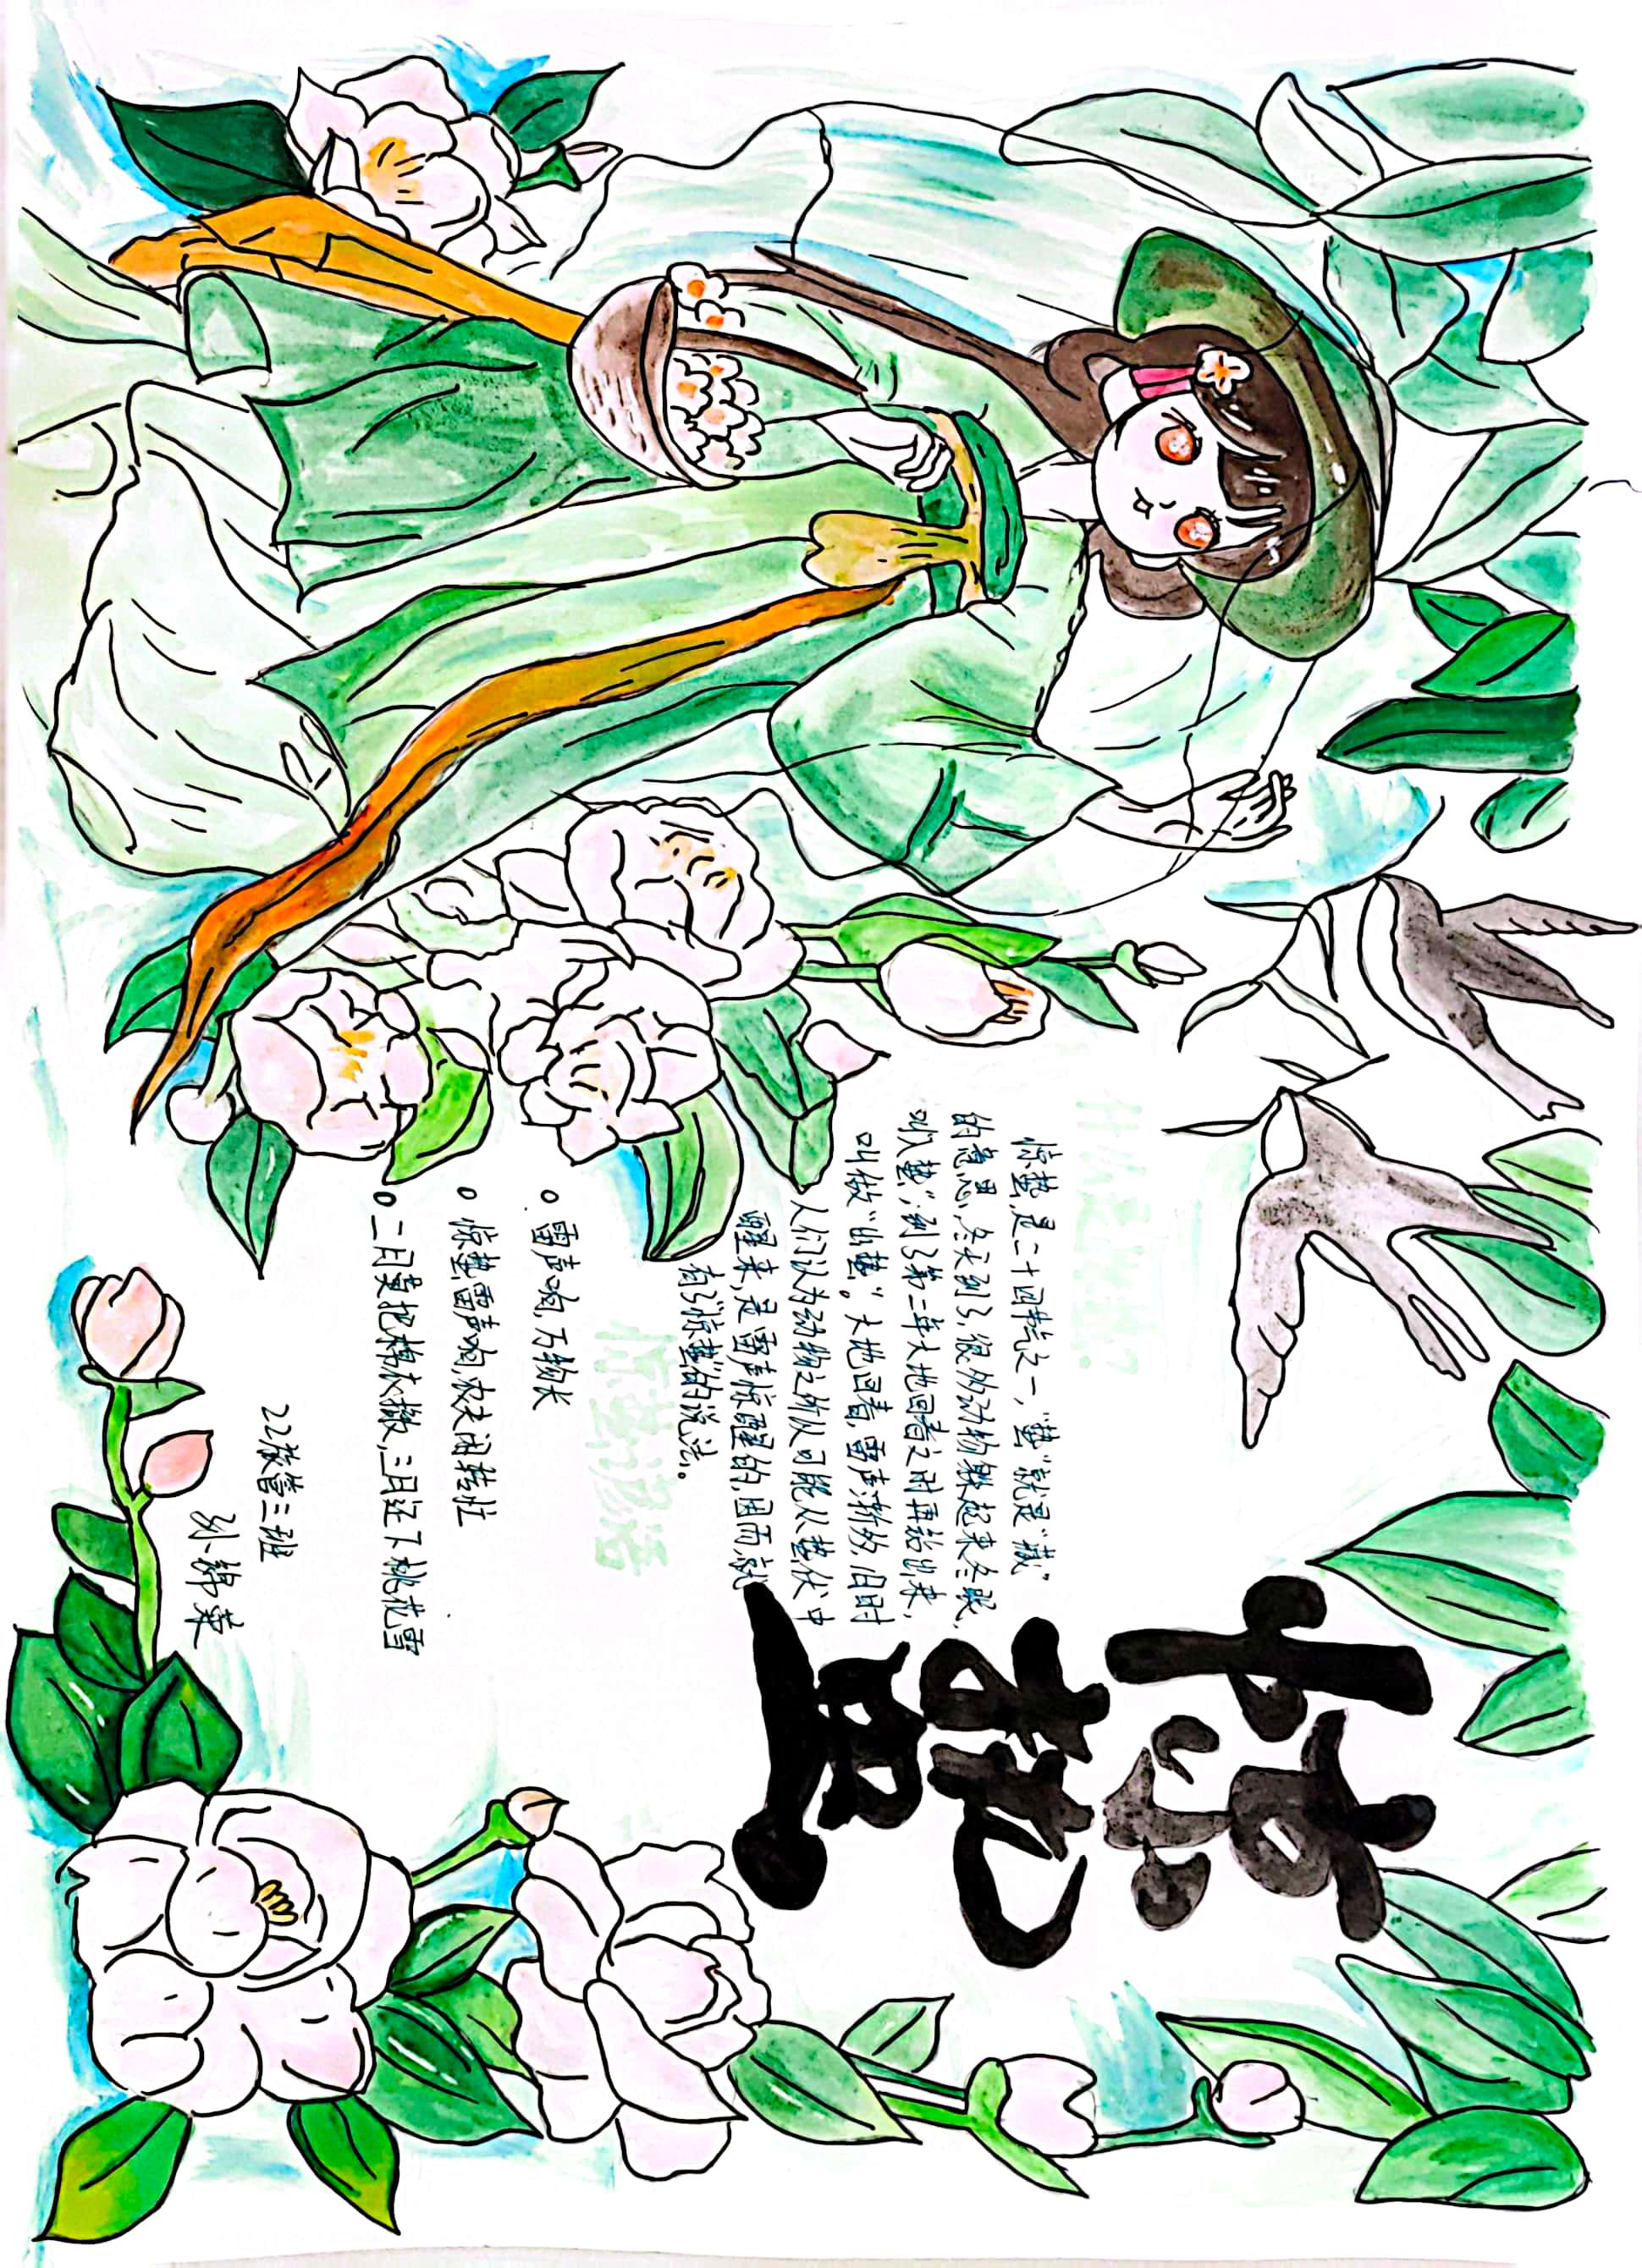 惊蛰
什么是惊蛰?
惊蛰,是二十四节气之一,“蛰”就是“藏”
的意思。冬天到了,很多动物躲起来冬眠,
叫“入蛰”,到了第二年大地回春之时再钻出来,
叫做“出蛰”。大地回春,雷声渐多,旧时
人们认为动物之所以可能从蛰伏中
醒来,是雷声惊醒的,因而,就
有了“惊蛰”的说法。
惊蛰谚语
雷声响,万物长
惊蛰雷声响,农夫闲转忙
二月莫把棉衣撤,三月还下桃花雪
22农管三班
孙锦荣